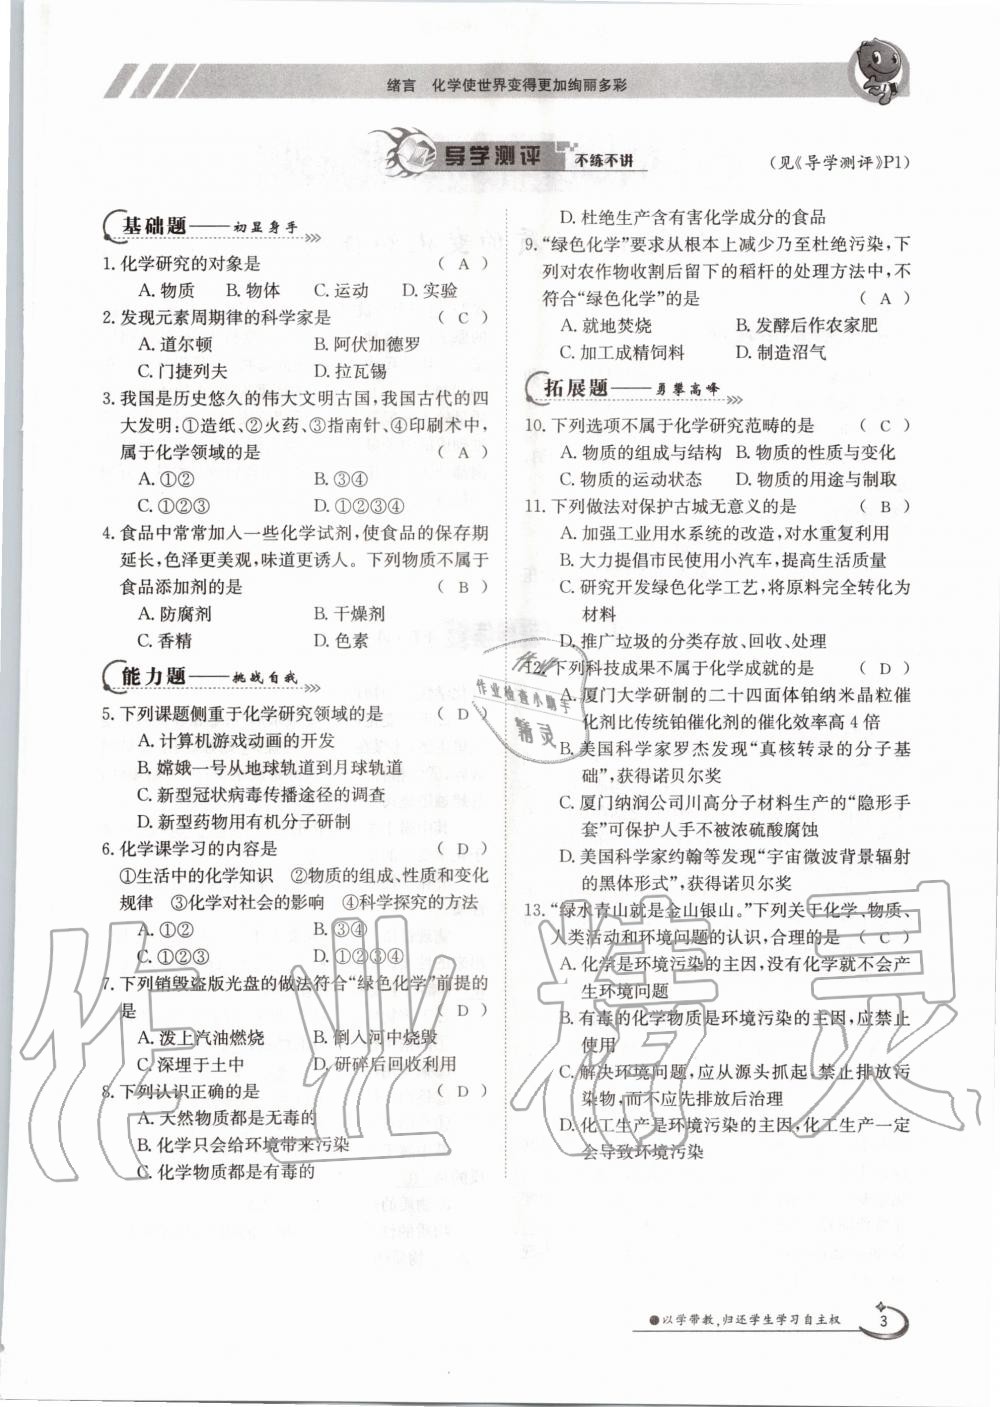 绪言 化学使世界变得更加绚丽多彩
导学测评 不练不讲
(见《导学测评》P1)
基础题——初显身手
1. 化学研究的对象是 ( A )
A. 物质 B. 物体 C. 运动 D. 实验
2. 发现元素周期律的科学家是 ( C )
A. 道尔顿 B. 阿伏加德罗
C. 门捷列夫 D. 拉瓦锡
3. 我国是历史悠久的伟大文明古国，我国古代的四
大发明：①造纸、②火药、③指南针、④印刷术中，
属于化学领域的是 ( A )
A. ①② B. ③④
C. ①②③ D. ①②③④
4. 食品中常常加入一些化学试剂，使食品的保存期
延长，色泽更美观，味道更诱人。下列物质不属于
食品添加剂的是 ( B )
A. 防腐剂 B. 干燥剂
C. 香精 D. 色素
能力题——挑战自我
5. 下列课题侧重于化学研究领域的是 ( D )
A. 计算机游戏动画的开发
B. 嫦娥一号从地球轨道到月球轨道
C. 新型冠状病毒传播途径的调查
D. 新型药物用有机分子研制
6. 化学课学习的内容是 ( D )
①生活中的化学知识 ②物质的组成、性质和变化
规律 ③化学对社会的影响 ④科学探究的方法
A. ①② B. ③④
C. ①②③ D. ①②③④
7. 下列销毁盗版光盘的做法符合“绿色化学”前提的
是 ( D )
A. 泼上汽油燃烧 B. 倒入河中烧毁
C. 深埋于土中 D. 研碎后回收利用
8. 下列认识正确的是 ( D )
A. 天然物质都是无毒的
B. 化学只会给环境带来污染
C. 化学物质都是有毒的
D. 杜绝生产含有害化学成分的食品
9. “绿色化学”要求从根本上减少乃至杜绝污染，下
列对农作物收割后留下的稻杆的处理方法中，不
符合“绿色化学”的是 ( A )
A. 就地焚烧 B. 发酵后作农家肥
C. 加工成精饲料 D. 制造沼气
拓展题——勇攀高峰
10. 下列选项不属于化学研究范畴的是 ( C )
A. 物质的组成与结构 B. 物质的性质与变化
C. 物质的运动状态 D. 物质的用途与制取
11. 下列做法对保护古城无意义的是 ( B )
A. 加强工业用水系统的改造，对水重复利用
B. 大力提倡市民使用小汽车，提高生活质量
C. 研究开发绿色化学工艺，将原料完全转化为
材料
D. 推广垃圾的分类存放、回收、处理
12. 下列科技成果不属于化学成就的是 ( D )
A. 厦门大学研制的二十四面体铂纳米晶粒催
化剂比传统铂催化剂的催化效率高 4 倍
B. 美国科学家罗杰发现“真核转录的分子基
础”，获得诺贝尔奖
C. 厦门纳润公司川高分子材料生产的“隐形手
套”可保护人手不被浓硫酸腐蚀
D. 美国科学家约翰等发现“宇宙微波背景辐射
的黑体形式”，获得诺贝尔奖
13. “绿水青山就是金山银山。”下列关于化学、物质、
人类活动和环境问题的认识，合理的是 ( C )
A. 化学是环境污染的主因，没有化学就不会产
生环境问题
B. 有毒的化学物质是环境污染的主因，应禁止
使用
C. 解决环境问题，应从源头抓起 禁止排放污
染物，而不应先排放后治理
D. 化工生产是环境污染的主因，化工生产一定
会导致环境污染
作业
作业检查小助手
精灵
作业精灵
●以学带教，归还学生学习自主权 3